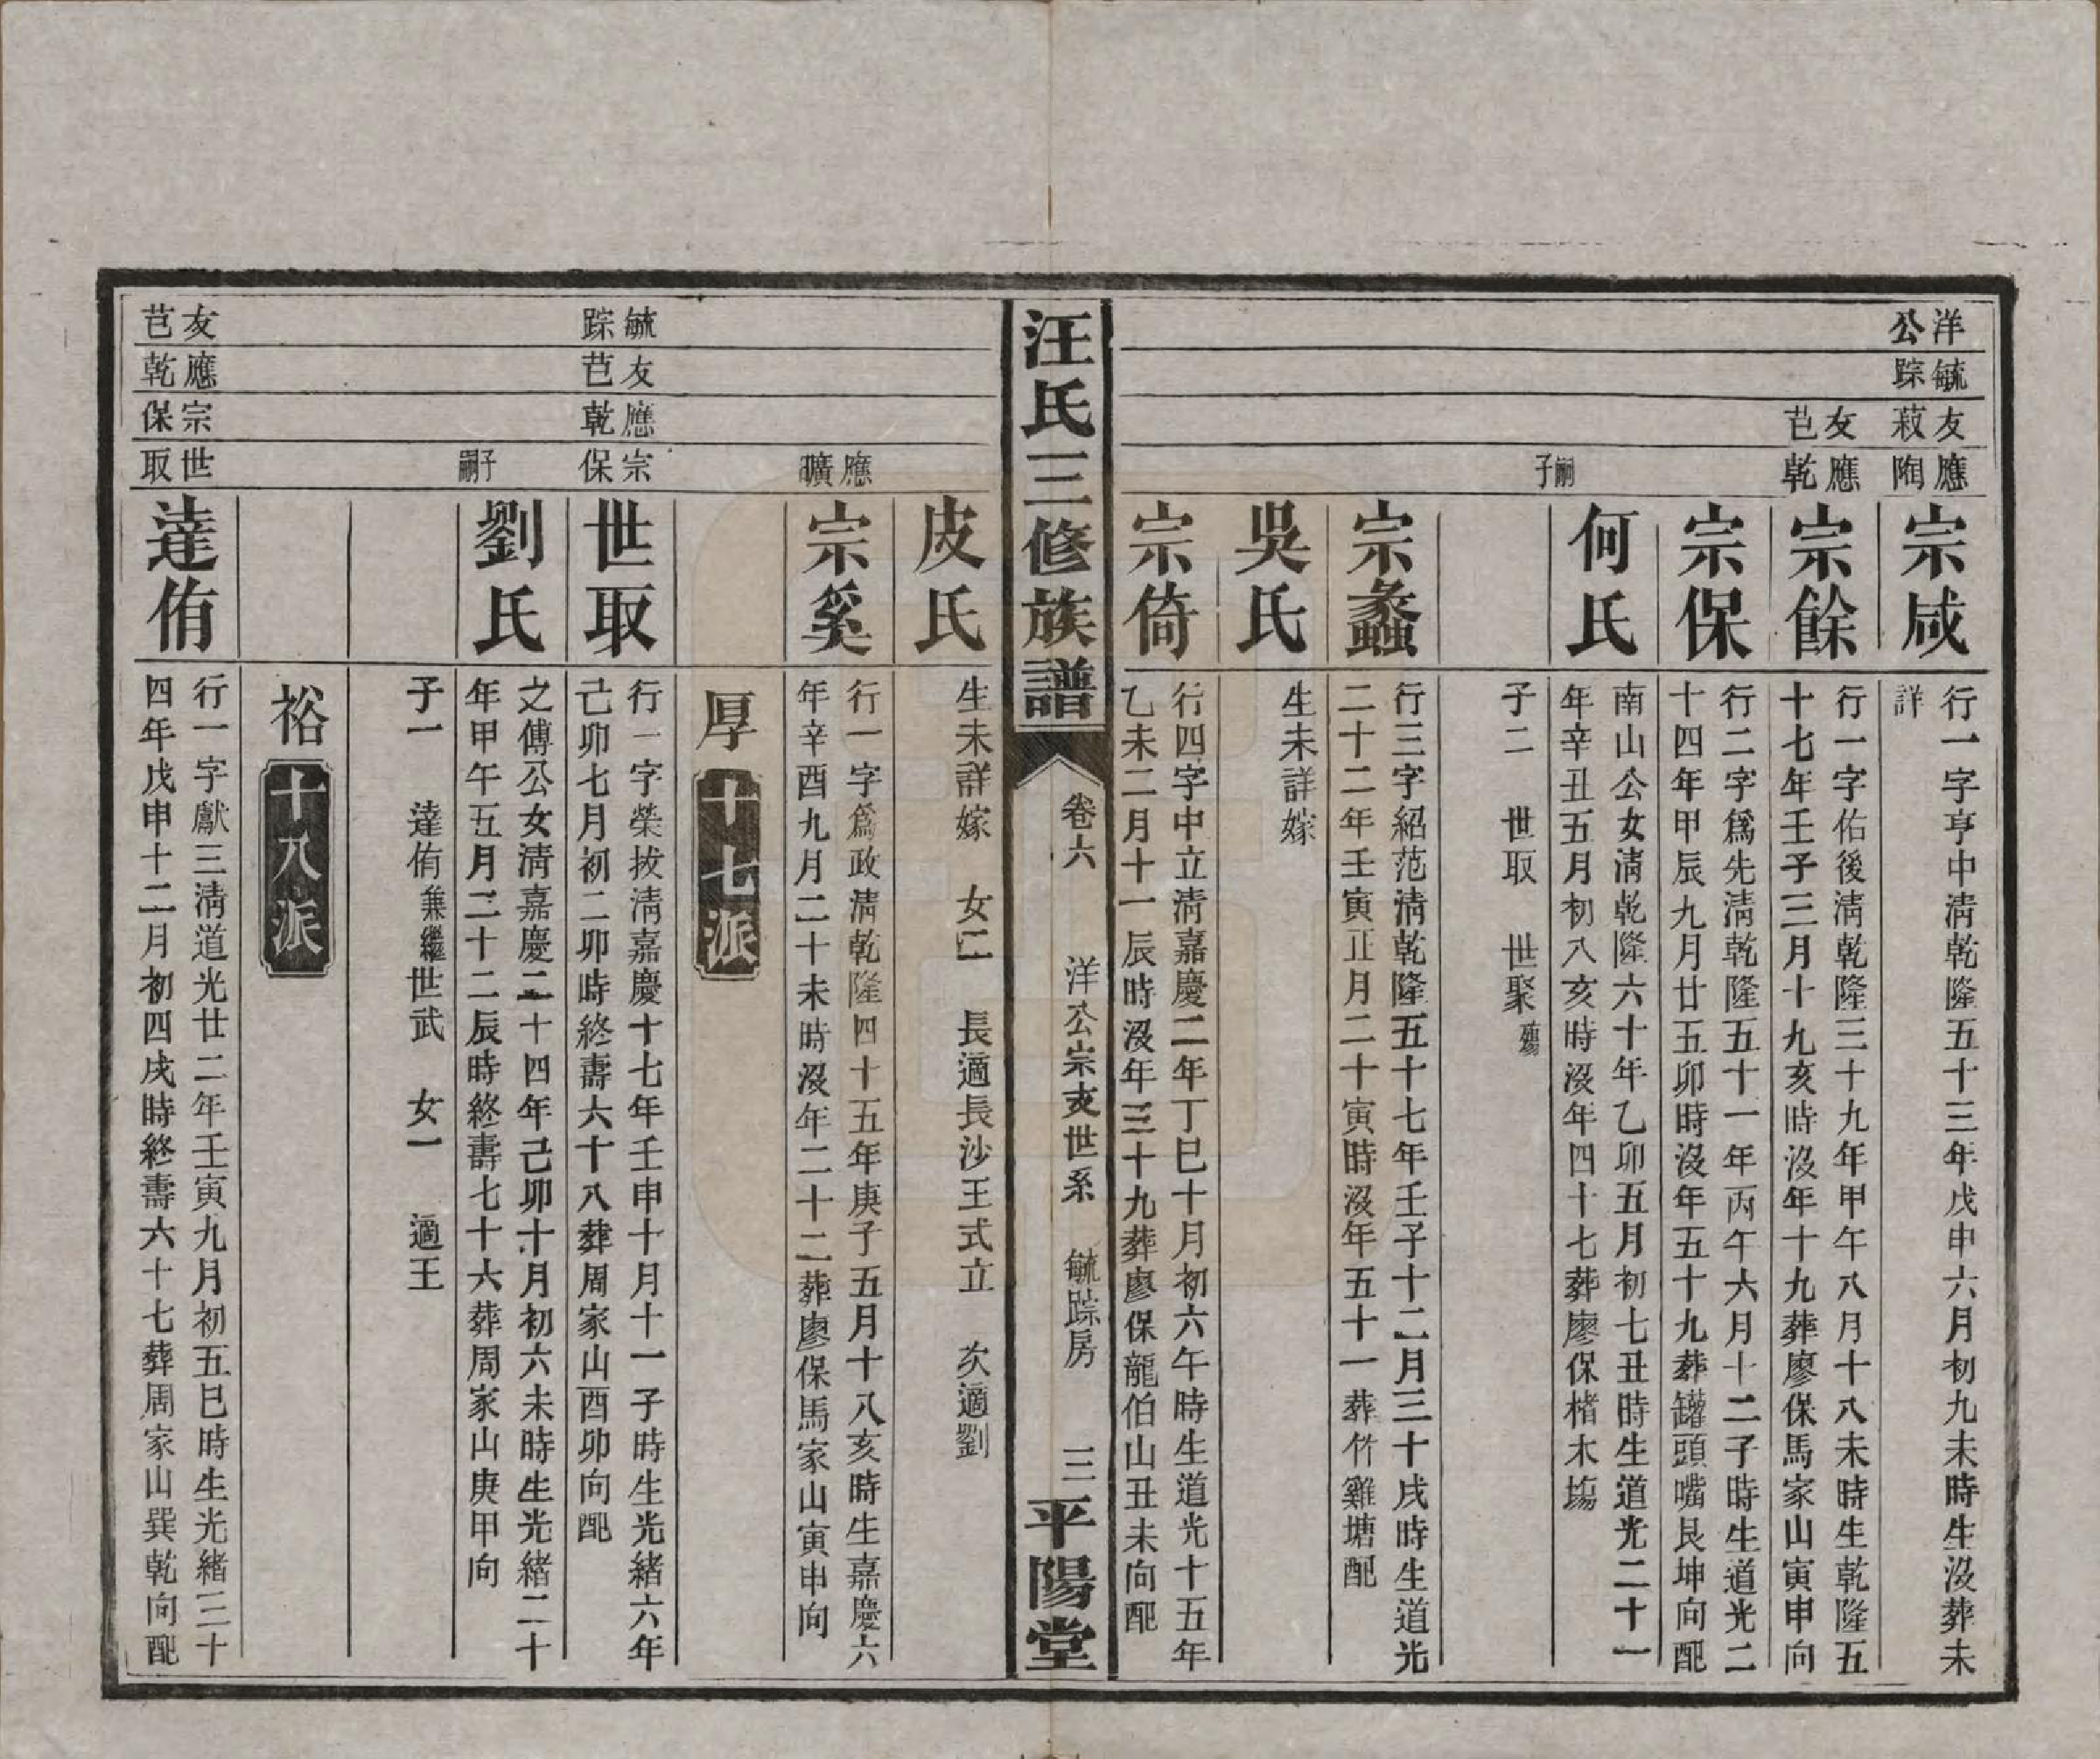 洋公
毓踪
友菽
應陶
宗咸
行一字亨中淸乾隆五十三年戊申六月初九未時生沒葬未
詳
友芑
應乾
宗餘
行一字佑後淸乾隆三十九年甲午八月十八未時生乾隆五
十七年壬子三月十九亥時沒年十九葬廖保馬家山寅申向
宗保
行二字爲先淸乾隆五十一年丙午六月十二子時生道光二
十四年甲辰九月廿五卯時沒年五十九葬罐頭嘴艮坤向配
何氏
南山公女淸乾隆六十年乙卯五月初七丑時生道光二十一
年辛丑五月初八亥時沒年四十七葬廖保楮木塲
嗣子
子二　世取　世聚殤
宗蠡
行三字紹范淸乾隆五十七年壬子十二月三十戌時生道光
二十二年壬寅正月二十寅時沒年五十一葬竹雞塘配
吳氏
生未詳嫁
宗倚
行四字中立淸嘉慶二年丁巳十月初六午時生道光十五年
乙未二月十一辰時沒年三十九葬廖保龍伯山丑未向配
汪氏三修族譜
卷六　洋公宗支世系　毓踪房　三
平陽堂
皮氏
生未詳嫁　女二　長適長沙王式立　次適劉
應曠
宗奚
行一字爲政淸乾隆四十五年庚子五月十八亥時生嘉慶六
年辛酉九月二十未時沒年二十二葬廖保馬家山寅申向
厚
十七派
毓踪
友芑
應乾
宗保
世取
行一字榮拔淸嘉慶十七年壬申十月十一子時生光緒六年
己卯七月初二卯時終壽六十八葬周家山酉卯向配
劉氏
之傅公女淸嘉慶二十四年己卯十月初六未時生光緒二十
年甲午五月二十二辰時終壽七十六葬周家山庚甲向
子嗣
子一　達侑兼繼世武　女一　適王
裕
十八派
友芑
應乾
宗保
世取
達侑
行一字獻三淸道光廿二年壬寅九月初五巳時生光緒三十
四年戊申十二月初四戌時終壽六十七葬周家山巽乾向配